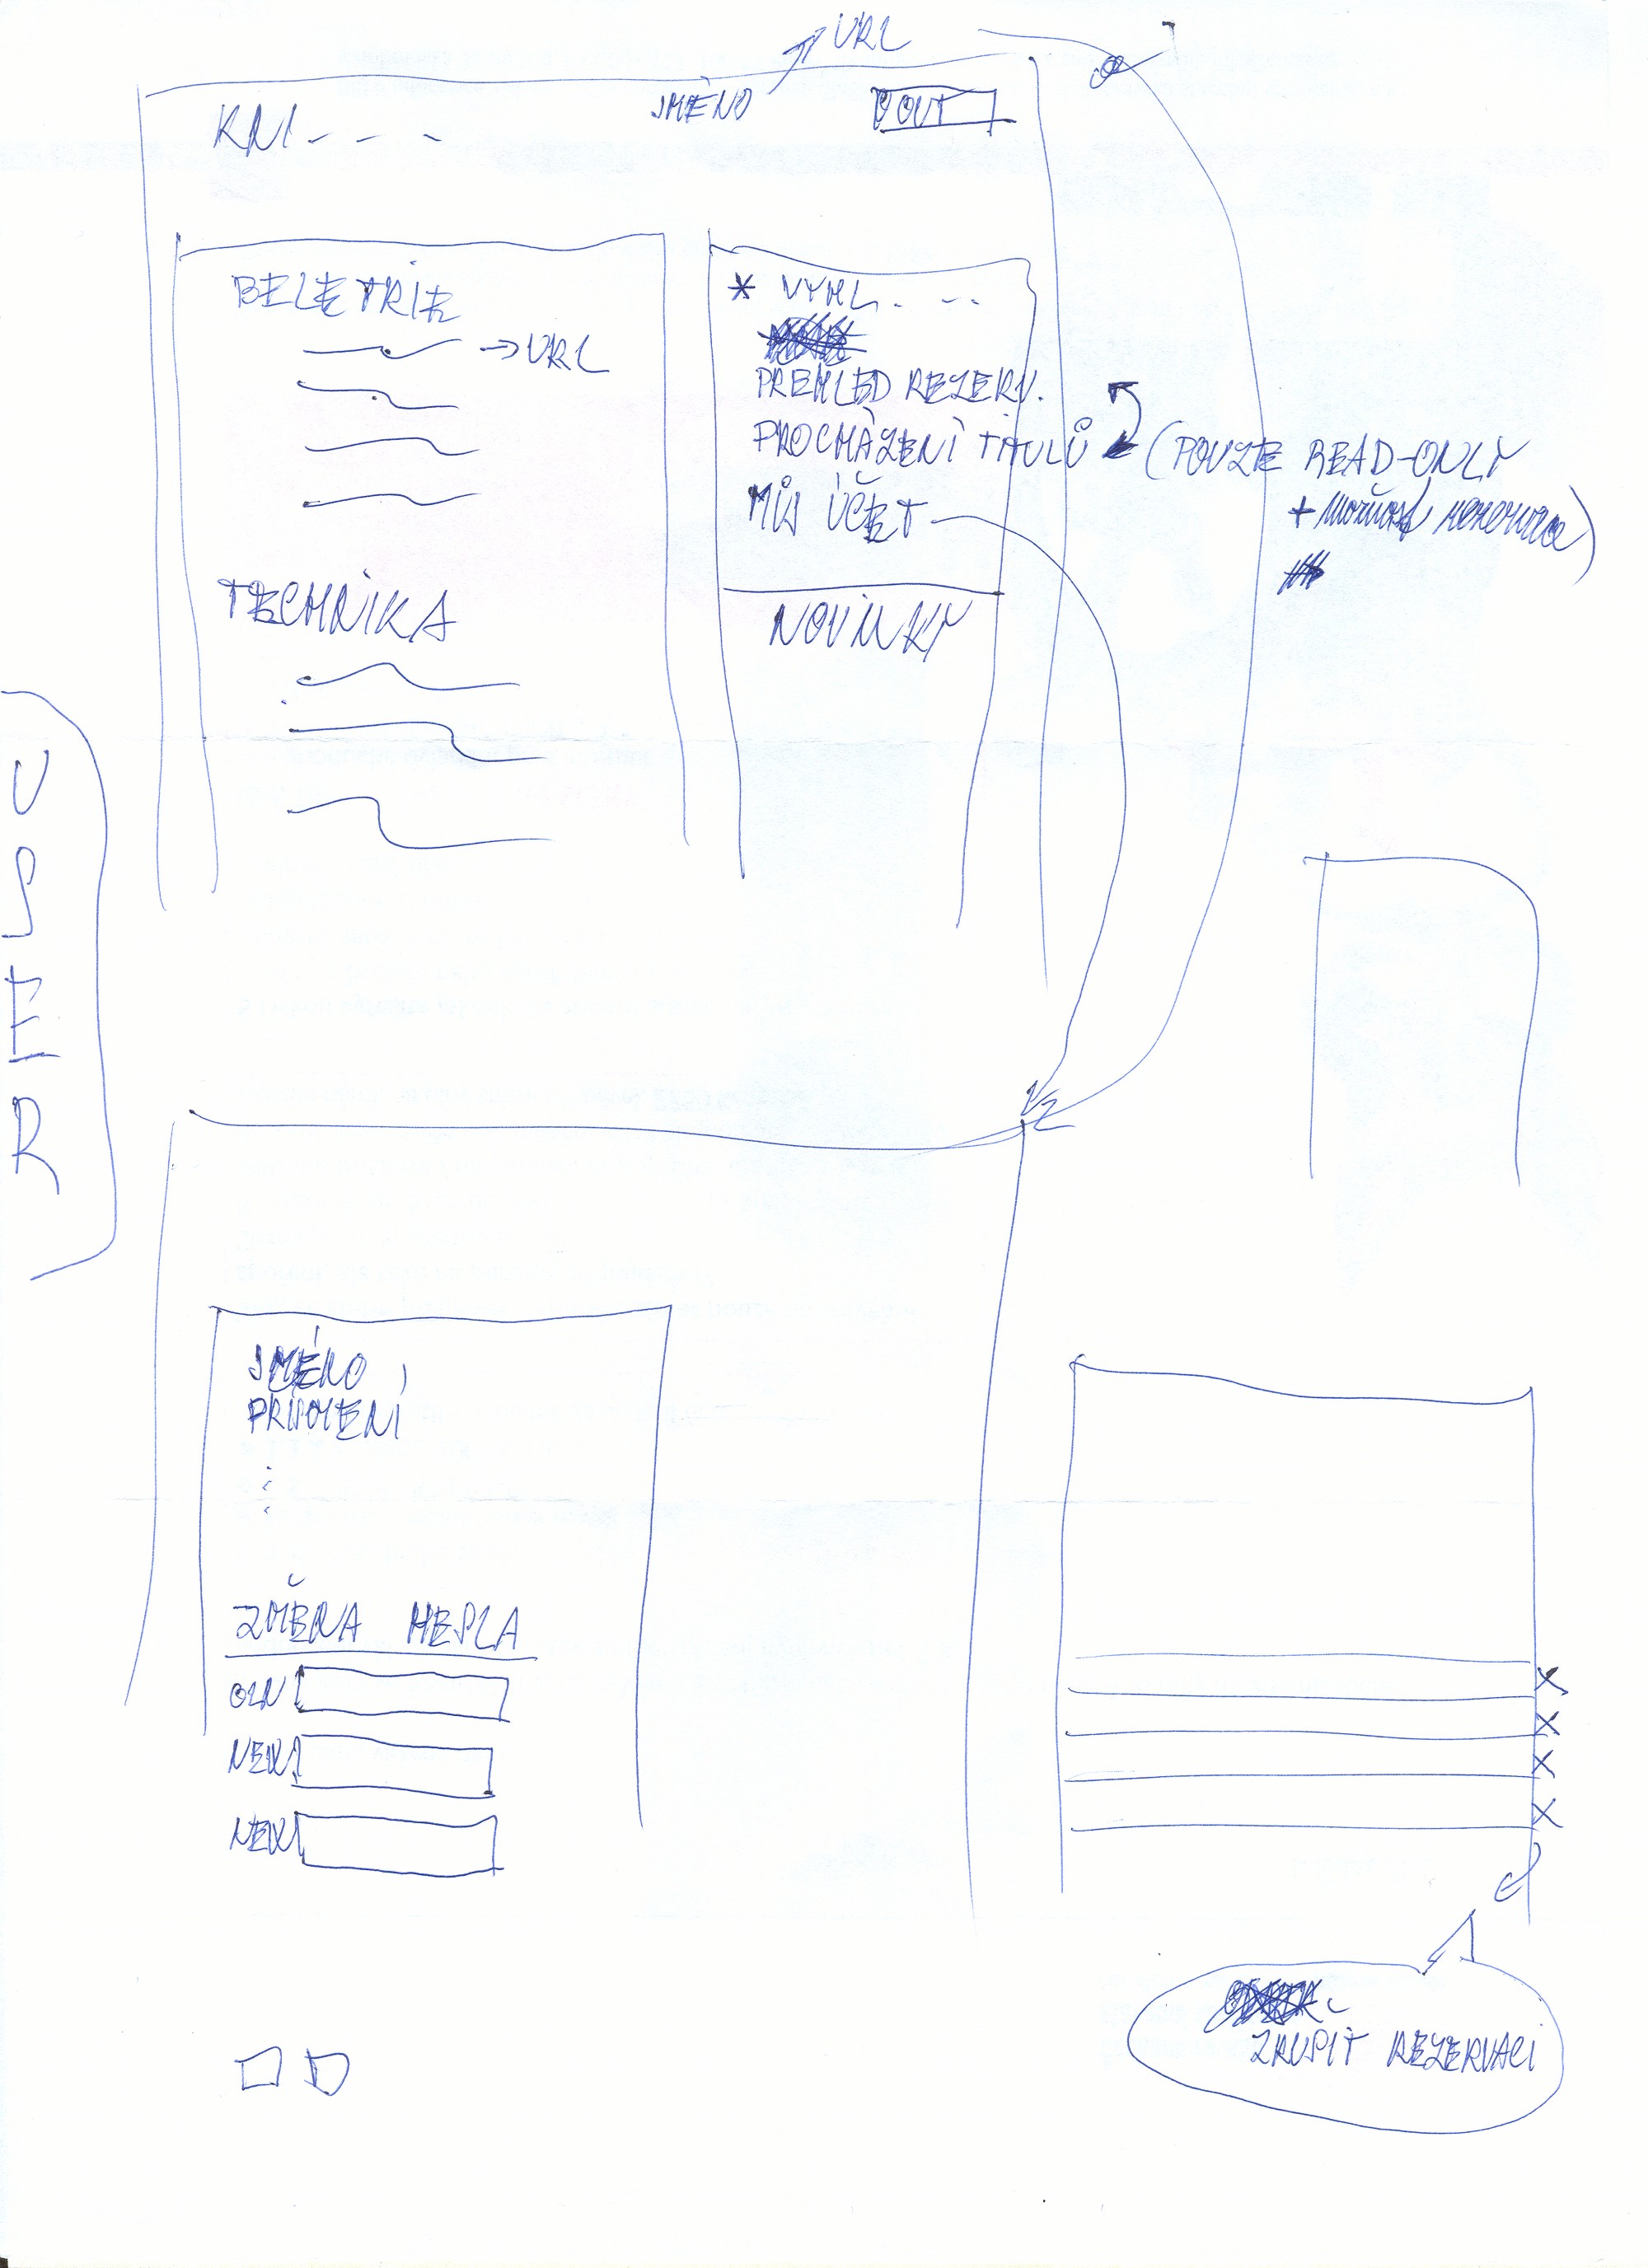 URL
KNI - - -
JMÉNO
BELETRIE
→ URL
TECHNIKA
* VYHL. - -.
PŘEHLED REZERV.
PROCHÁZENÍ TITULŮ
(POUZE READ-ONLY
+ možnost rezervace)
MŮJ ÚČET
NOVINKY
USER
JMÉNO
PŘÍJMENÍ
ZMĚNA HESLA
OLD
NEW
NEW
ZRUŠIT REZERVACI